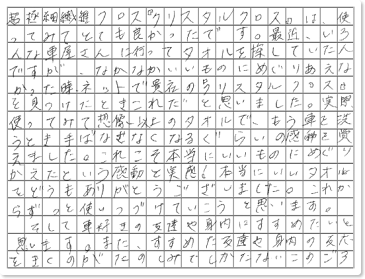 超極細繊維クロス『クリスタルクロス』は、使
ってみてとても良かったです。最近、いろ
んな車屋さんに行ってタオルを探していた
ですが、なかなかいいものにめぐりあえな
かった時ネットで貴店のクリスタルクロス
を見つけたときこれだと思いました。実際
使ってみて想像以上のタオルで、もう車を洗
うとき手ばなせなくなるぐらいの感動を覚
えました。これこそ本当にいいものにめぐり
あえたという感動と実感！本当にいいタオル
でどうもありがとうございました。これか
らずっと使いつづけていこうと思います。
そして車好きの友達や身内にすすめたいと
思います。また、すすめた友達や身内の反応
をきくのがたのしみでしかたないこのごろ